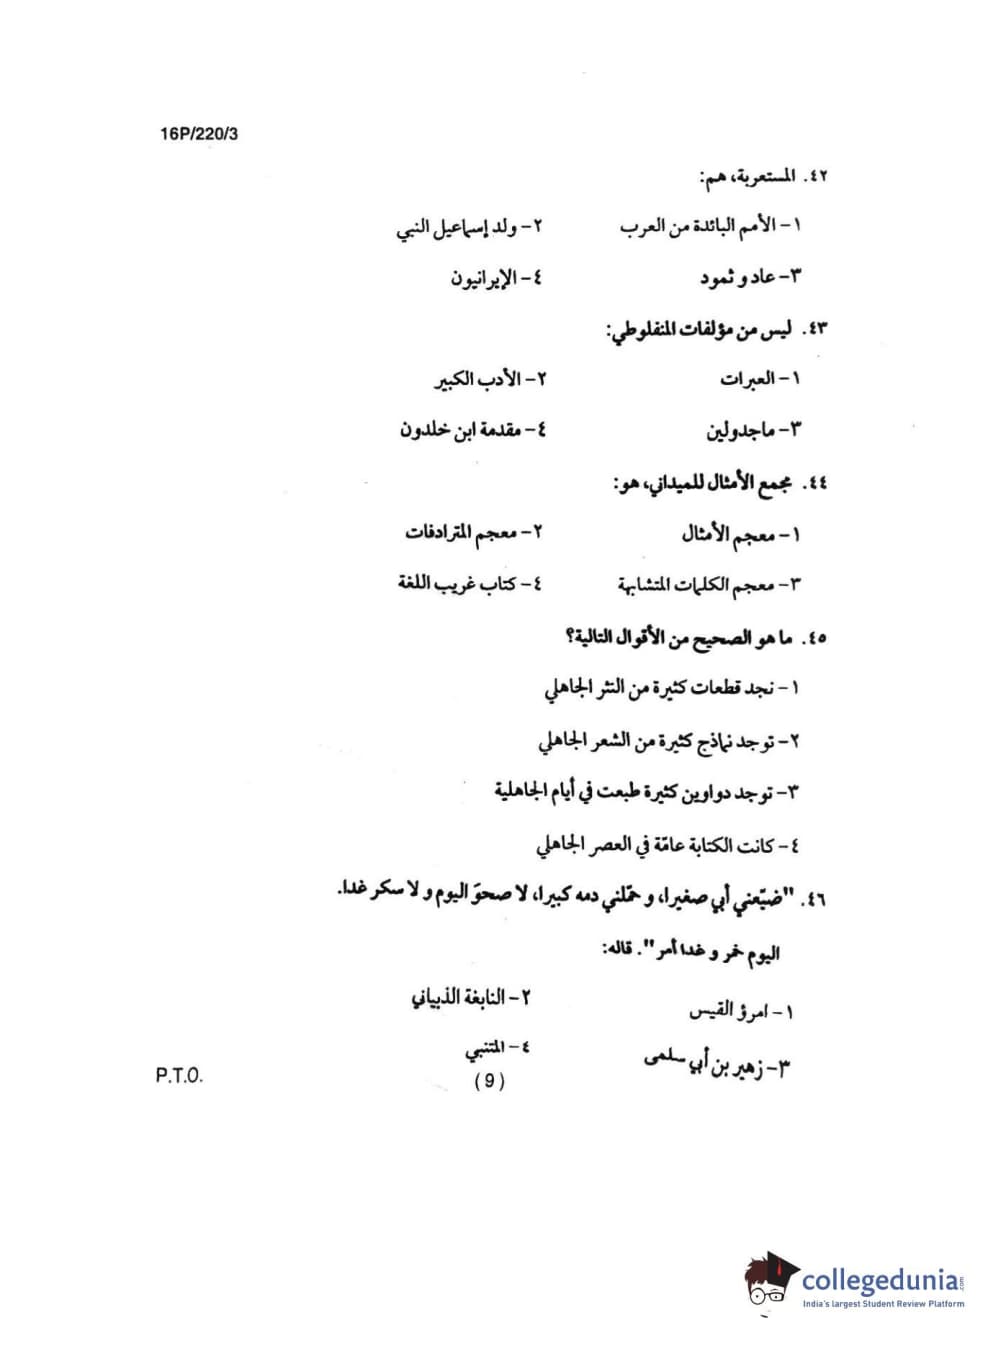 16P/220/3
٤٢. المستعربة، هم:
١- الأمم البائدة من العرب ٢- ولد إسماعيل النبي
٣- عاد و ثمود ٤- الإيرانيون
٤٣. ليس من مؤلفات المنفلوطي:
١- العبرات ٢- الأدب الكبير
٣- ماجدولين ٤- مقدمة ابن خلدون
٤٤. مجمع الأمثال للميداني، هو:
١- معجم الأمثال ٢- معجم المترادفات
٣- معجم الكلمات المتشابهة ٤- كتاب غريب اللغة
٤٥. ما هو الصحيح من الأقوال التالية؟
١- نجد قطعات كثيرة من النثر الجاهلي
٢- توجد نماذج كثيرة من الشعر الجاهلي
٣- توجد دواوين كثيرة طبعت في أيام الجاهلية
٤- كانت الكتابة عامّة في العصر الجاهلي
٤٦. "ضيّعني أبي صغيرا، و حمّلني دمه كبيرا، لا صحوَ اليوم و لا سكر غدا.
اليوم خمر و غدا أمر". قاله:
١- امرؤ القيس ٢- النابغة الذبياني
٣- زهير بن أبي سلمى ٤- المتنبي
P.T.O.
(9)
collegedunia.com
India's largest Student Review Platform